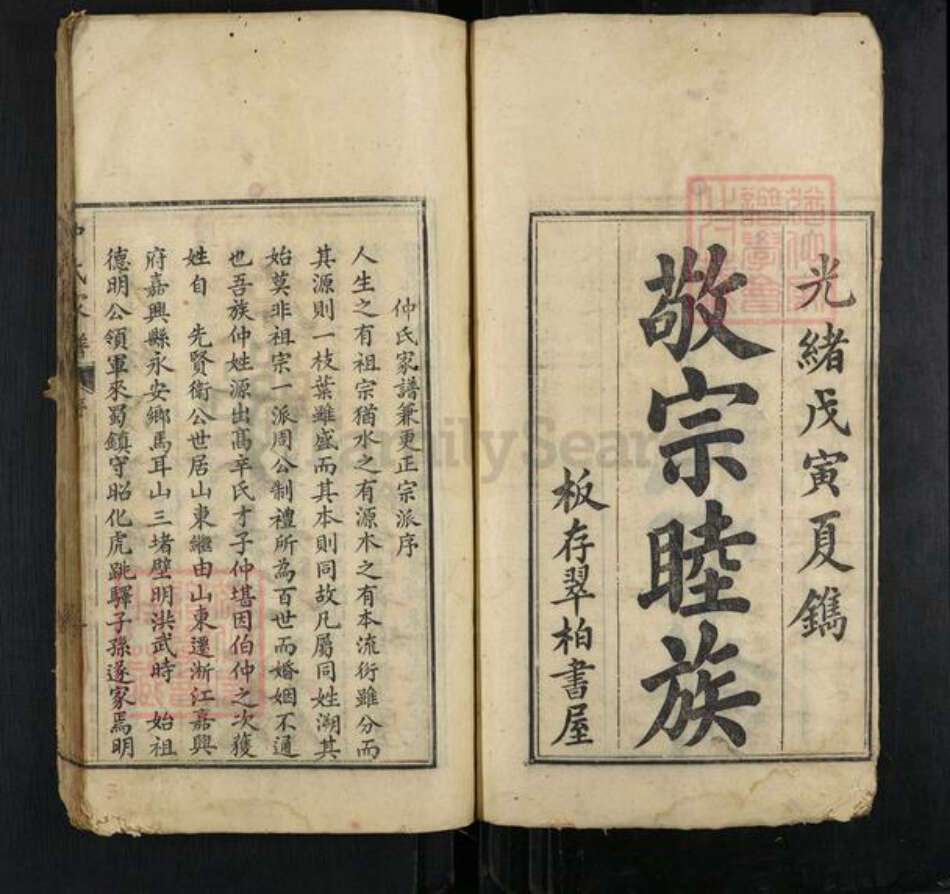 光緒戊寅夏鐫
敬宗睦族
板存翠柏書屋
仲氏家譜兼更正宗派序
人生之有祖宗猶水之有源木之有本流衍雖分而
其源則一枝葉雖盛而其本則同故凡屬同姓溯其
始莫非祖宗一派周公制禮所為百世而婚姻不通
也吾族仲姓源出高辛氏才子仲堪因伯仲之次獲
姓自 先賢衛公世居山東繼由山東遷浙江嘉興
府嘉興縣永安鄉馬耳山三堵壁明洪武時 始祖
德明公領軍來蜀鎮守昭化虎跳驛子孫遂家焉明
FamilySear